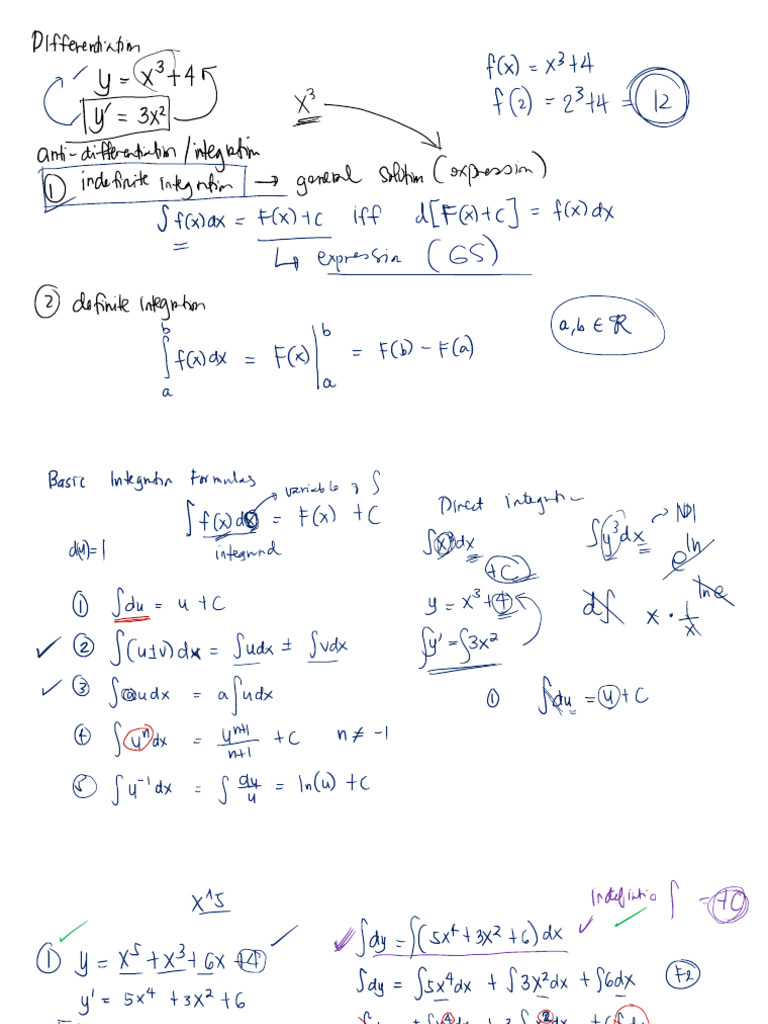 Differentiation
y = x³+4
y' = 3x²
x³
f(x) = x³+4
f(2) = 2³+4 = 12
anti-differentiation/integration
① indefinite integration → general solution (expression)
∫f(x)dx = F(x)+C iff d[F(x)+C] = f(x)dx
=
↳ expression (GS)
② definite integration
a,b ∈ R
∫ₐᵇ f(x)dx = F(x)|ₐᵇ = F(b) - F(a)
Basic Integration Formulas
variable of ∫
∫f(x)dx = F(x) + C
integrand
① ∫du = u + C
② ∫(u±v)dx = ∫udx ± ∫vdx
③ ∫audx = a∫udx
④ ∫uⁿdx = uⁿ⁺¹/n+1 + C n ≠ -1
⑤ ∫u⁻¹dx = ∫du/u = ln(u) + C
Direct integration
∫y³dx → NDI
+C
y = x³+4
∫y' = ∫3x²
x · 1/x
① ∫du = u + C
x^5
① y = x⁵+x³+6x+4
y' = 5x⁴ +3x²+6
Indefinite ∫ = +C
∫dy = ∫(5x⁴+3x²+6)dx
∫dy = ∫5x⁴dx + ∫3x²dx + ∫6dx F2